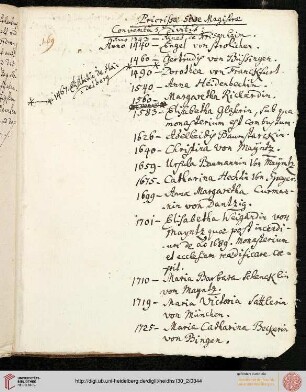 Priorissæ sive Magistræ
169
Anno 1440 – Engel von
1460 – Gertrudis von Büssingen.
1467. Ottilia de Heidelberg
1490 – Dorothea von Franckfurt.
1540 – Anna Heidenbechin.
1560 – Margaretha Rickardin.
1583 – Elisabetha sub qua
monasterium est combustum.
1626 – Adelheidis Baumstarckin.
1640 – Christina von Mayntz.
1659 – Ursula Baumannin von Mayntz
1675 – Catharina Hechtin von Speyer.
1689 – Anna Margaretha
von Dantzig.
1701 – Elisabetha Weighardin von
Mayntz quæ post incendium
de aõ 1689. monasterium
et ecclesiam readificare cæpit.
1710 – Maria Barbara Schencklin
von Mayntz.
1719 – Maria Victoria Sattlerin
von München.
1725 – Maria Catharina
von Bingen.
http://digi.ub.uni-heidelberg.de/diglit/heidhs130_2/0344
UNIVERSITÄTS-
BIBLIOTHEK
HEIDELBERG